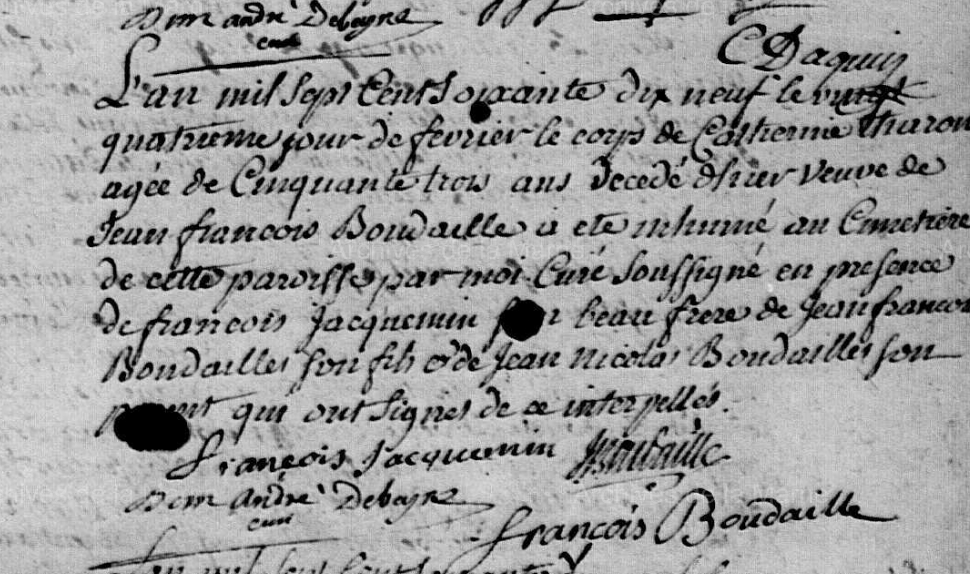 Dom andré Debeyne
curé
C Daquin
L'an mil sept Cent Soixante dix neuf le vingt
quatrieme jour de fevrier le corps de Catherine Tharon
agée de Cinquante trois ans decedé d'hier veuve de
Jean françois Boudaille a eté inhumé au Cimetiere
de cette paroisse par moi Curé Soussigné en presence
de françois Jacquemin son beau frere de Jean françois
Boudailles son fils et de Jean nicolas Boudailles son
parent qui ont signés de ce interpellés.
françois Jacquemin
Dom andré Debeyne
curé
françois Boudaille